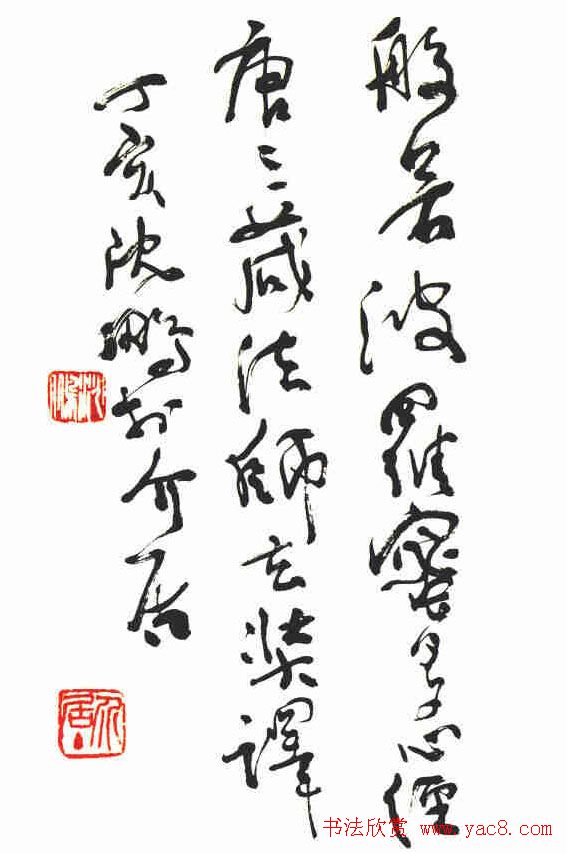 般若波羅蜜多心經
唐三藏法師玄奘譯
丁亥沈鵬於介居
沈鵬
介居
书法欣赏 www.yac8.com